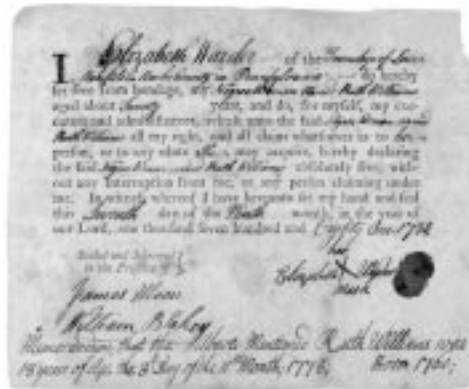 I Elizabeth Warder of the Township of Lower
Makefield Bucks County in Pennsylvania do hereby
set free from bondage, my Negro Woman Named Ruth Williams
aged about Twenty years, and do, for myself, my exe-
cutors and administrators, release unto the said Negro Woman named
Ruth Williams all my right, and all claim whatsoever as to her
person, or to any estate She may acquire, hereby declaring
the said Negro Woman named Ruth Williams absolutely free, with-
out any Interruption from me, or any person claiming under
me. In witness whereof I have hereunto set my hand and seal
this Seventh day of the month, in the year of
our Lord, one thousand seven hundred and Eighty One 1781
her
Sealed and delivered
in the Presence of
Elizabeth
mark
James Moon
William Blakey
Memorandum that the above Mentioned Ruth Williams was
18 years of Age the 3 Day of the 11 Month 1778, Born 1760,